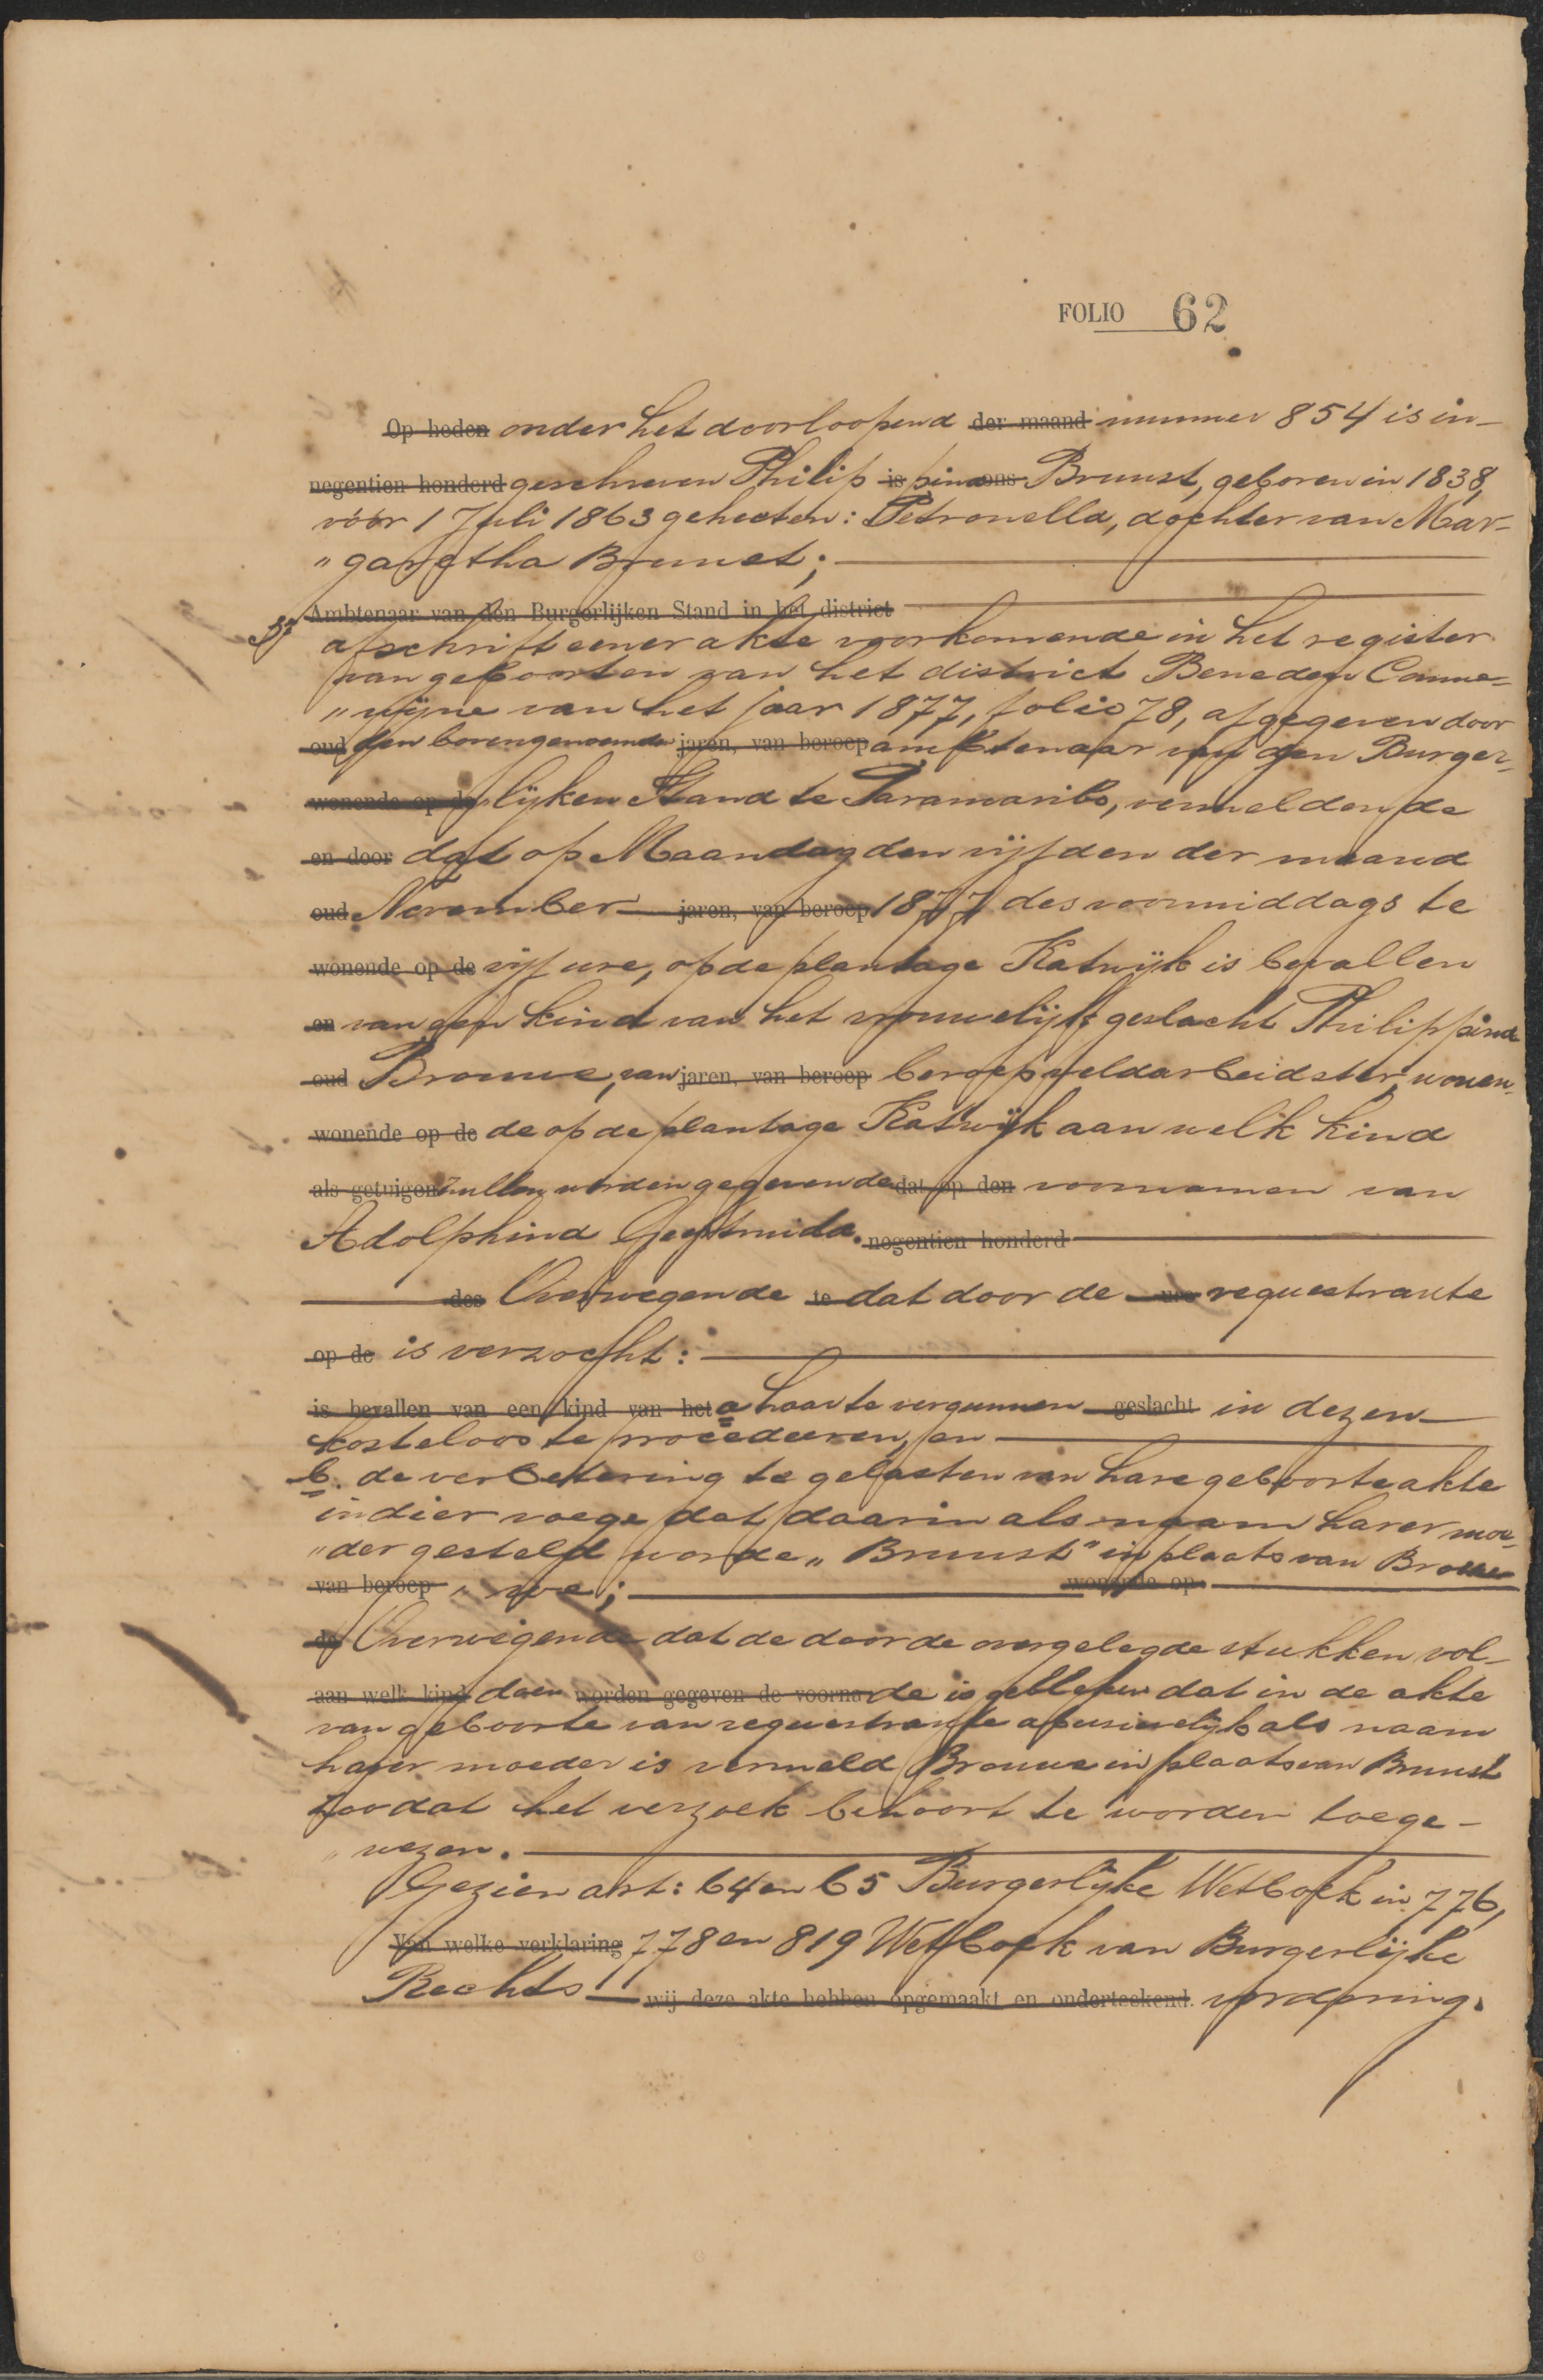 FOLIO 62
Op heden onder het doorloopend der maand nummer 854 is in-
negentien honderd geschreven Philip is pina ons Brunst, geboren in 1838,
vóór 1 Juli 1863 geheeten: Petronella, dochter van Mar-
"garetha Brunst;
Ambtenaar van den Burgerlijken Stand in het district
3º afschrift eener akte voorkomende in het register
van geboorten van het district Beneden Comme-
"wijne van het jaar 1877, folio 78, afgegeven door
oud den bovengenoemden jaren, van beroep ambtenaar van den Burger-
wonende op de lijken Stand te Paramaribo, vermeldende
en door dat op Maandag den vijfden der maand
oud November jaren, van beroep 1877 des voormiddags te
wonende op de vijf ure, op de plantage Katwijk is bevallen
en van een kind van het vrouwelijk geslacht Philippina
oud Brouwe, van jaren, van beroep beroep veldarbeidster, wonen-
wonende op de de op de plantage Katwijk aan welk kind
als getuigen zullen worden gegeven de dat op den voornamen van
Adolphina Geertruida. negentien honderd
des Overwegende te dat door de ure requestrante
op de is verzocht:
is bevallen van een kind van het a haar te vergunnen geslacht in dezen
kosteloos te procedeeren, en
b. de verbetering te gelasten van hare geboorteakte
in dier voege dat daarin als naam harer moe-
"der gesteld worde "Brunst" in plaats van Brou
van beroep "we; wonende op
de Overwegende dat de door de overgelegde stukken vol-
aan welk kind doen worden gegeven de voorna de is gebleken dat in de akte
van geboorte van requestrante abusievelijk als naam
harer moeder is vermeld Brouwe in plaats van Brunst
zoodat het verzoek behoort te worden toege-
"wezen.
Gezien art: 64 en 65 Burgerlijke Wetboek in 776,
Van welke verklaring 778 en 819 Wetboek van Burgerlijke
Rechts wij deze akte hebben opgemaakt en onderteekend. vordering.